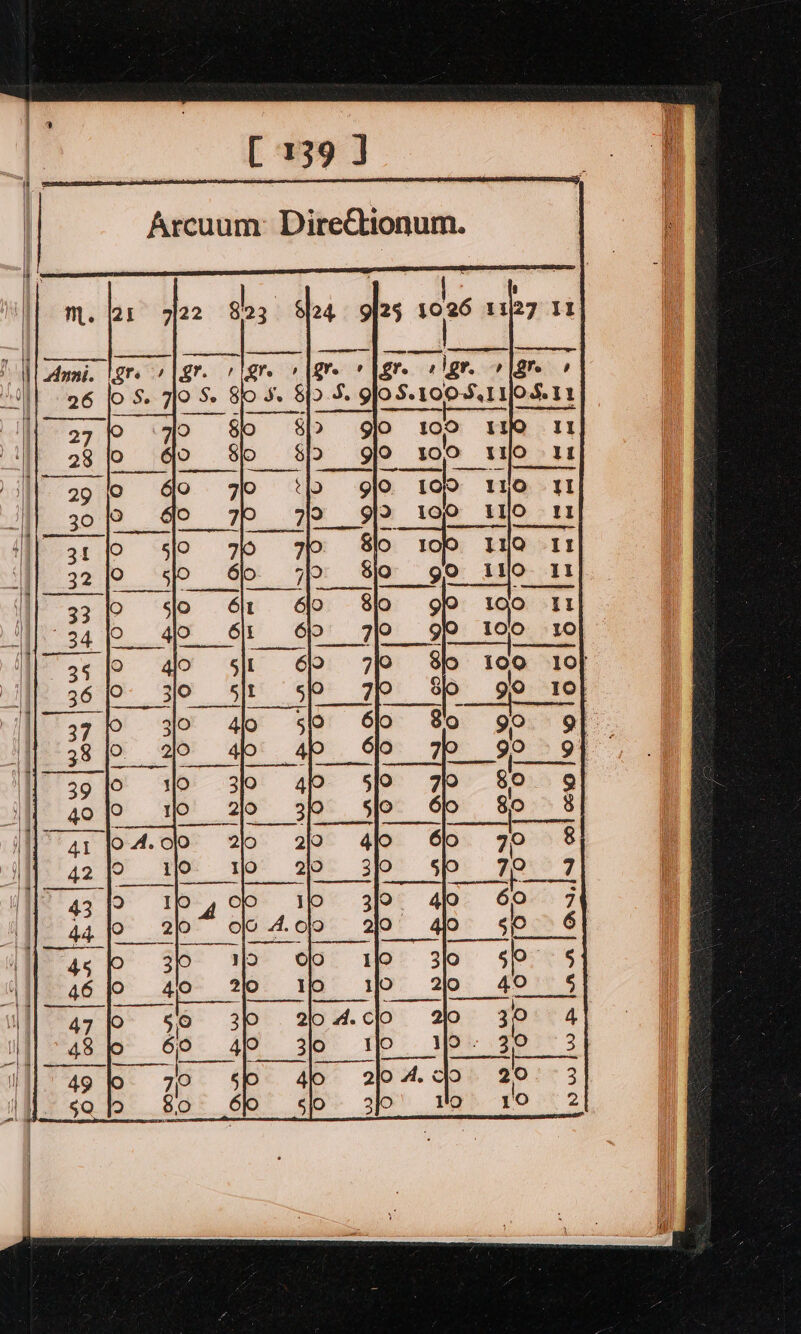 [ 139 ]
Arcuum Directionum.
m. 21 7 22 8 23 8 24 9 25 10 26 11 27 11
Anni. gr. ' gr. ' gr. ' gr. ' gr. ' gr. ' gr. '
26 0 S. 7 0 S. 8 0 S. 8 0 S. 9 0 S. 10 0 S. 11 0 S. 11
27 0 7 0 8 0 8 0 9 0 10 0 11 0 11
28 0 6 0 8 0 8 0 9 0 10 0 11 0 11
29 0 6 0 7 0 0 9 0 10 0 11 0 11
30 0 6 0 7 0 7 0 9 0 10 0 11 0 11
31 0 5 0 7 0 7 0 8 0 10 0 11 0 11
32 0 5 0 6 0 7 0 8 0 9 0 11 0 11
33 0 5 0 6 1 6 0 8 0 9 0 10 0 11
34 0 4 0 6 1 6 0 7 0 9 0 10 0 10
35 0 4 0 5 1 6 0 7 0 8 0 10 0 10
36 0 3 0 5 1 5 0 7 0 8 0 9 0 10
37 0 3 0 4 0 5 0 6 0 8 0 9 0 9
38 0 2 0 4 0 4 0 6 0 7 0 9 0 9
39 0 1 0 3 0 4 0 5 0 7 0 8 0 9
40 0 1 0 2 0 3 0 5 0 6 0 8 0 8
41 0 A. 0 0 2 0 2 0 4 0 6 0 7 0 8
42 0 1 0 1 0 2 0 3 0 5 0 7 0 7
43 0 1 0 A 0 0 1 0 3 0 4 0 6 0 7
44 0 2 0 0 0 A. 0 0 2 0 4 0 5 0 6
45 0 3 0 1 0 0 0 1 0 3 0 5 0 5
46 0 4 0 2 0 1 0 1 0 2 0 4 0 5
47 0 5 0 3 0 2 0 A. 0 0 2 0 3 0 4
48 0 6 0 4 0 3 0 1 0 1 0 3 0 3
49 0 7 0 5 0 4 0 2 0 A. 0 0 2 0 3
50 0 8 0 6 0 5 0 3 0 1 0 1 0 2